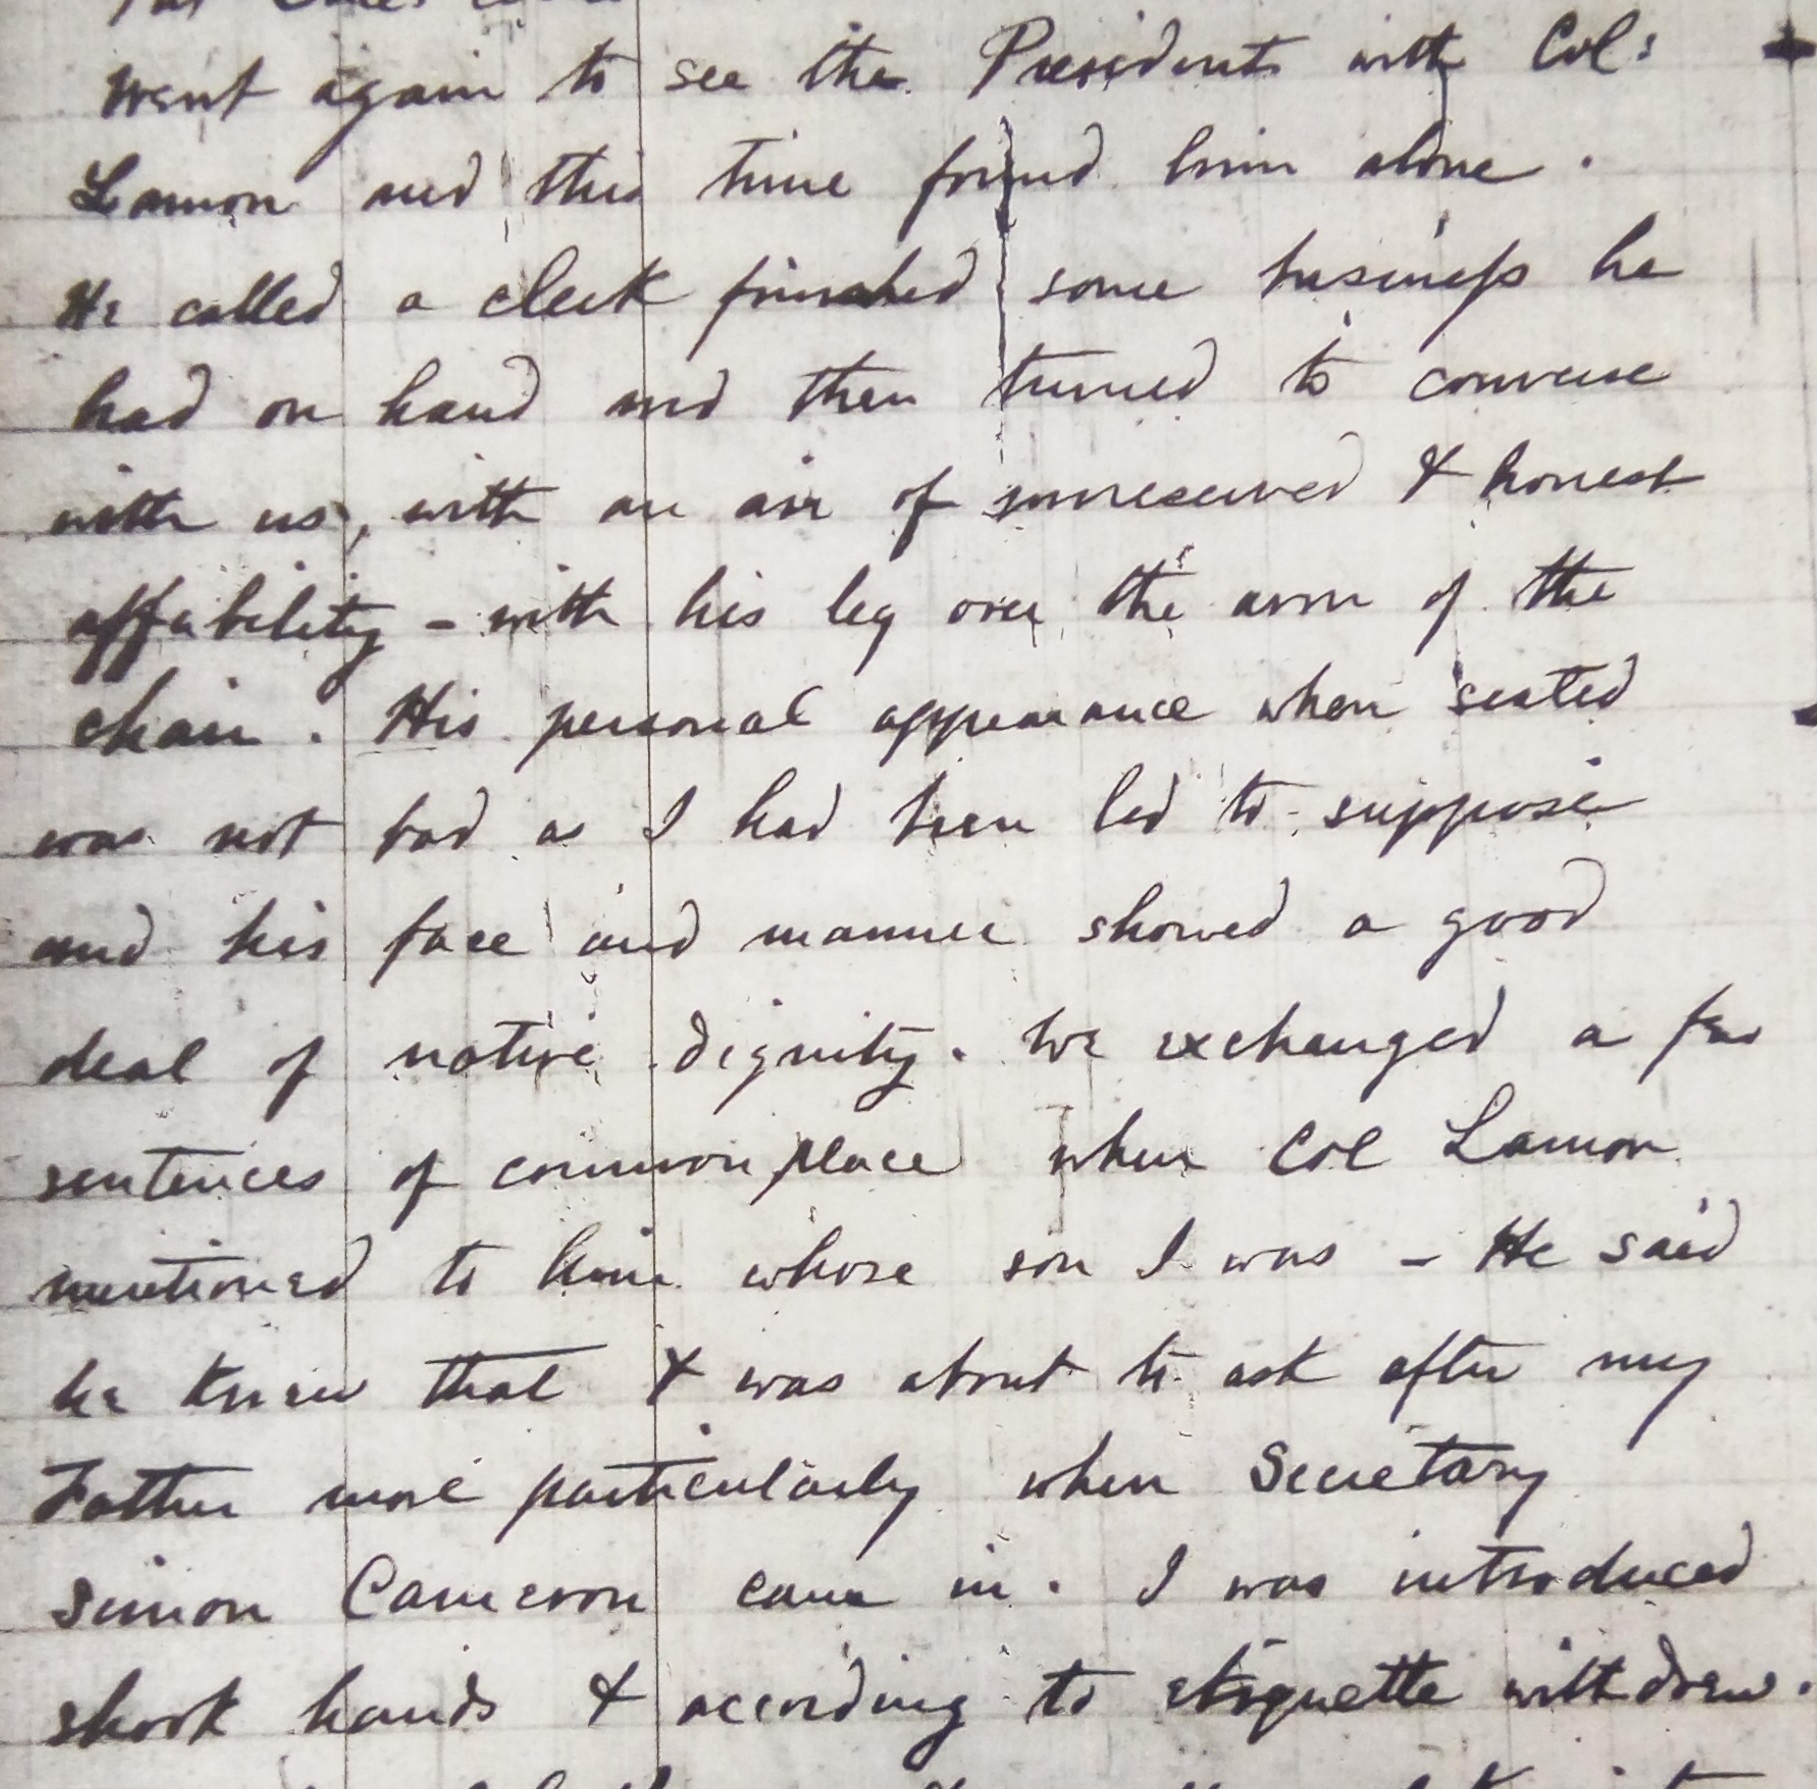 went again to see the President with Col:
Lamon and this time found him alone.
He called a clerk finished some business he
had on hand and then turned to converse
with us, with an air of unreserved & honest
affability - with his leg over the arm of the
chair. His personal appearance when seated
was not bad as I had been led to suppose
and his face and manner showed a good
deal of native dignity. We exchanged a few
sentences of common place when Col Lamon
mentioned to him whose son I was - He said
he knew that & was about to ask after my
Father more particularly when Secretary
Simon Cameron came in. I was introduced
shook hands & according to etiquette withdrew.